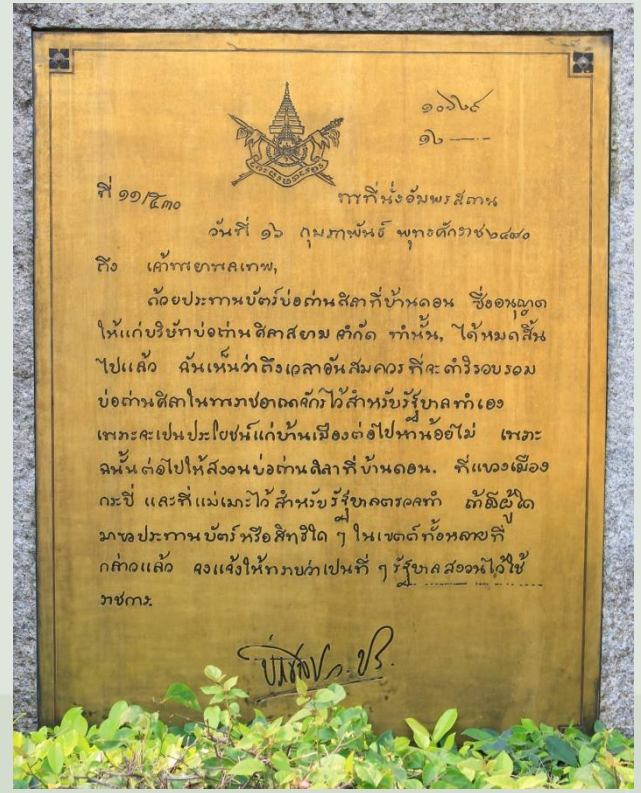 ๑๐๖๒๙
๑๖
ที่ ๑๑/๕๓๐
พระที่นั่งอัมพรสถาน
วันที่ ๑๖ กุมภาพันธ์ พุทธศักราช ๒๔๗๐
ถึง เจ้าพระยาพลเทพ,
ด้วยประทานบัตร์บ่อถ่านสิลาที่บ้านดอน ซึ่งอนุญาต
ให้แก่บริษัทบ่อถ่านศิลาสยาม จำกัด ทำนั้น, ได้หมดสิ้น
ไปแล้ว ฉันเห็นว่าถึงเวลาอันสมควรที่จะดำริรวบรวม
บ่อถ่านศิลาในพระราชอาณาจักร์ไว้สำหรับรัฐบาลทำเอง
เพราะจะเปนประโยชน์แก่บ้านเมืองต่อไปหาน้อยไม่ เพราะ
ฉนั้นต่อไปให้สงวนบ่อถ่านศิลาที่บ้านดอน, ที่แขวงเมือง
กระบี่ และที่แม่เมาะไว้สำหรับรัฐบาลตรวจทำ ถ้ามีผู้ใด
มาขอประทานบัตร์หรือสิทธิใด ๆ ในเขตต์ทั้งหลายที่
กล่าวแล้ว จงแจ้งให้ทราบว่าเปนที่ ๆ รัฐบาลสงวนไว้ใช้
ราชการ.
ประชาธิปก. ปร.